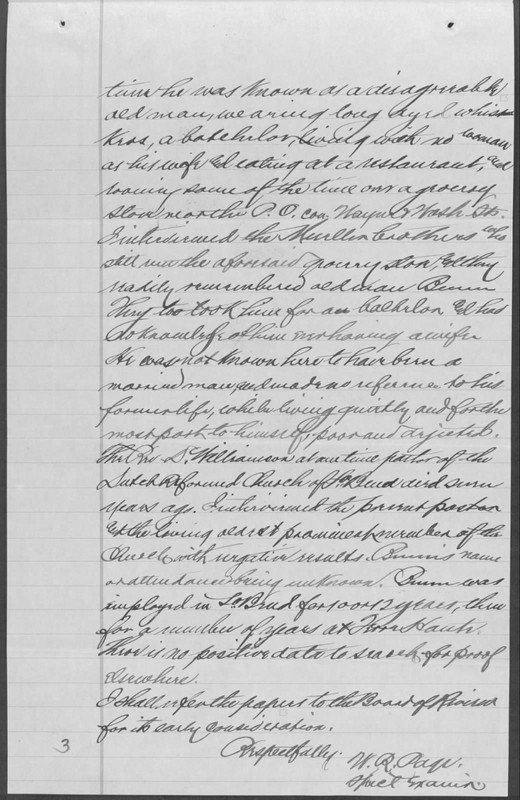 time he was known as a disagreeable
old man, wearing long dyed whis
kers, a batchelor, living with no woman
as his wife & eating at a restaurant, and
rooming some of the time over a grocery
store near the P.O. cor, Wayne & Wash. Sts.
I interviewed the Mueller brothers who
still run the aforesaid grocery store, & they
readily remembered old man Bunn
They too took him for a bachelor & had
no knowledge of him ever having a wife.
He was not known here to have been a
married man, and made no reference to his
former life, while living quietly and for the
most part to himself, poor and dejected.
The Rev. D. Williamson at one time pastor of the
Dutch Reformed Church of So. Bend died seven
years ago. I interviewed the present pastor
& the living oldest prominent member of the
Church, with negative results. Bunn's name
or attendance being unknown. Bunn was
employed in So. Bend for 10 or 12 years, then
for a number of years at Terre Haute.
There is no positive data to search for proof
elsewhere.
I shall refer the papers to the Board of Review
for its early consideration.
Respectfully.
W. R. Page.
Spec'l Examin'r.
3